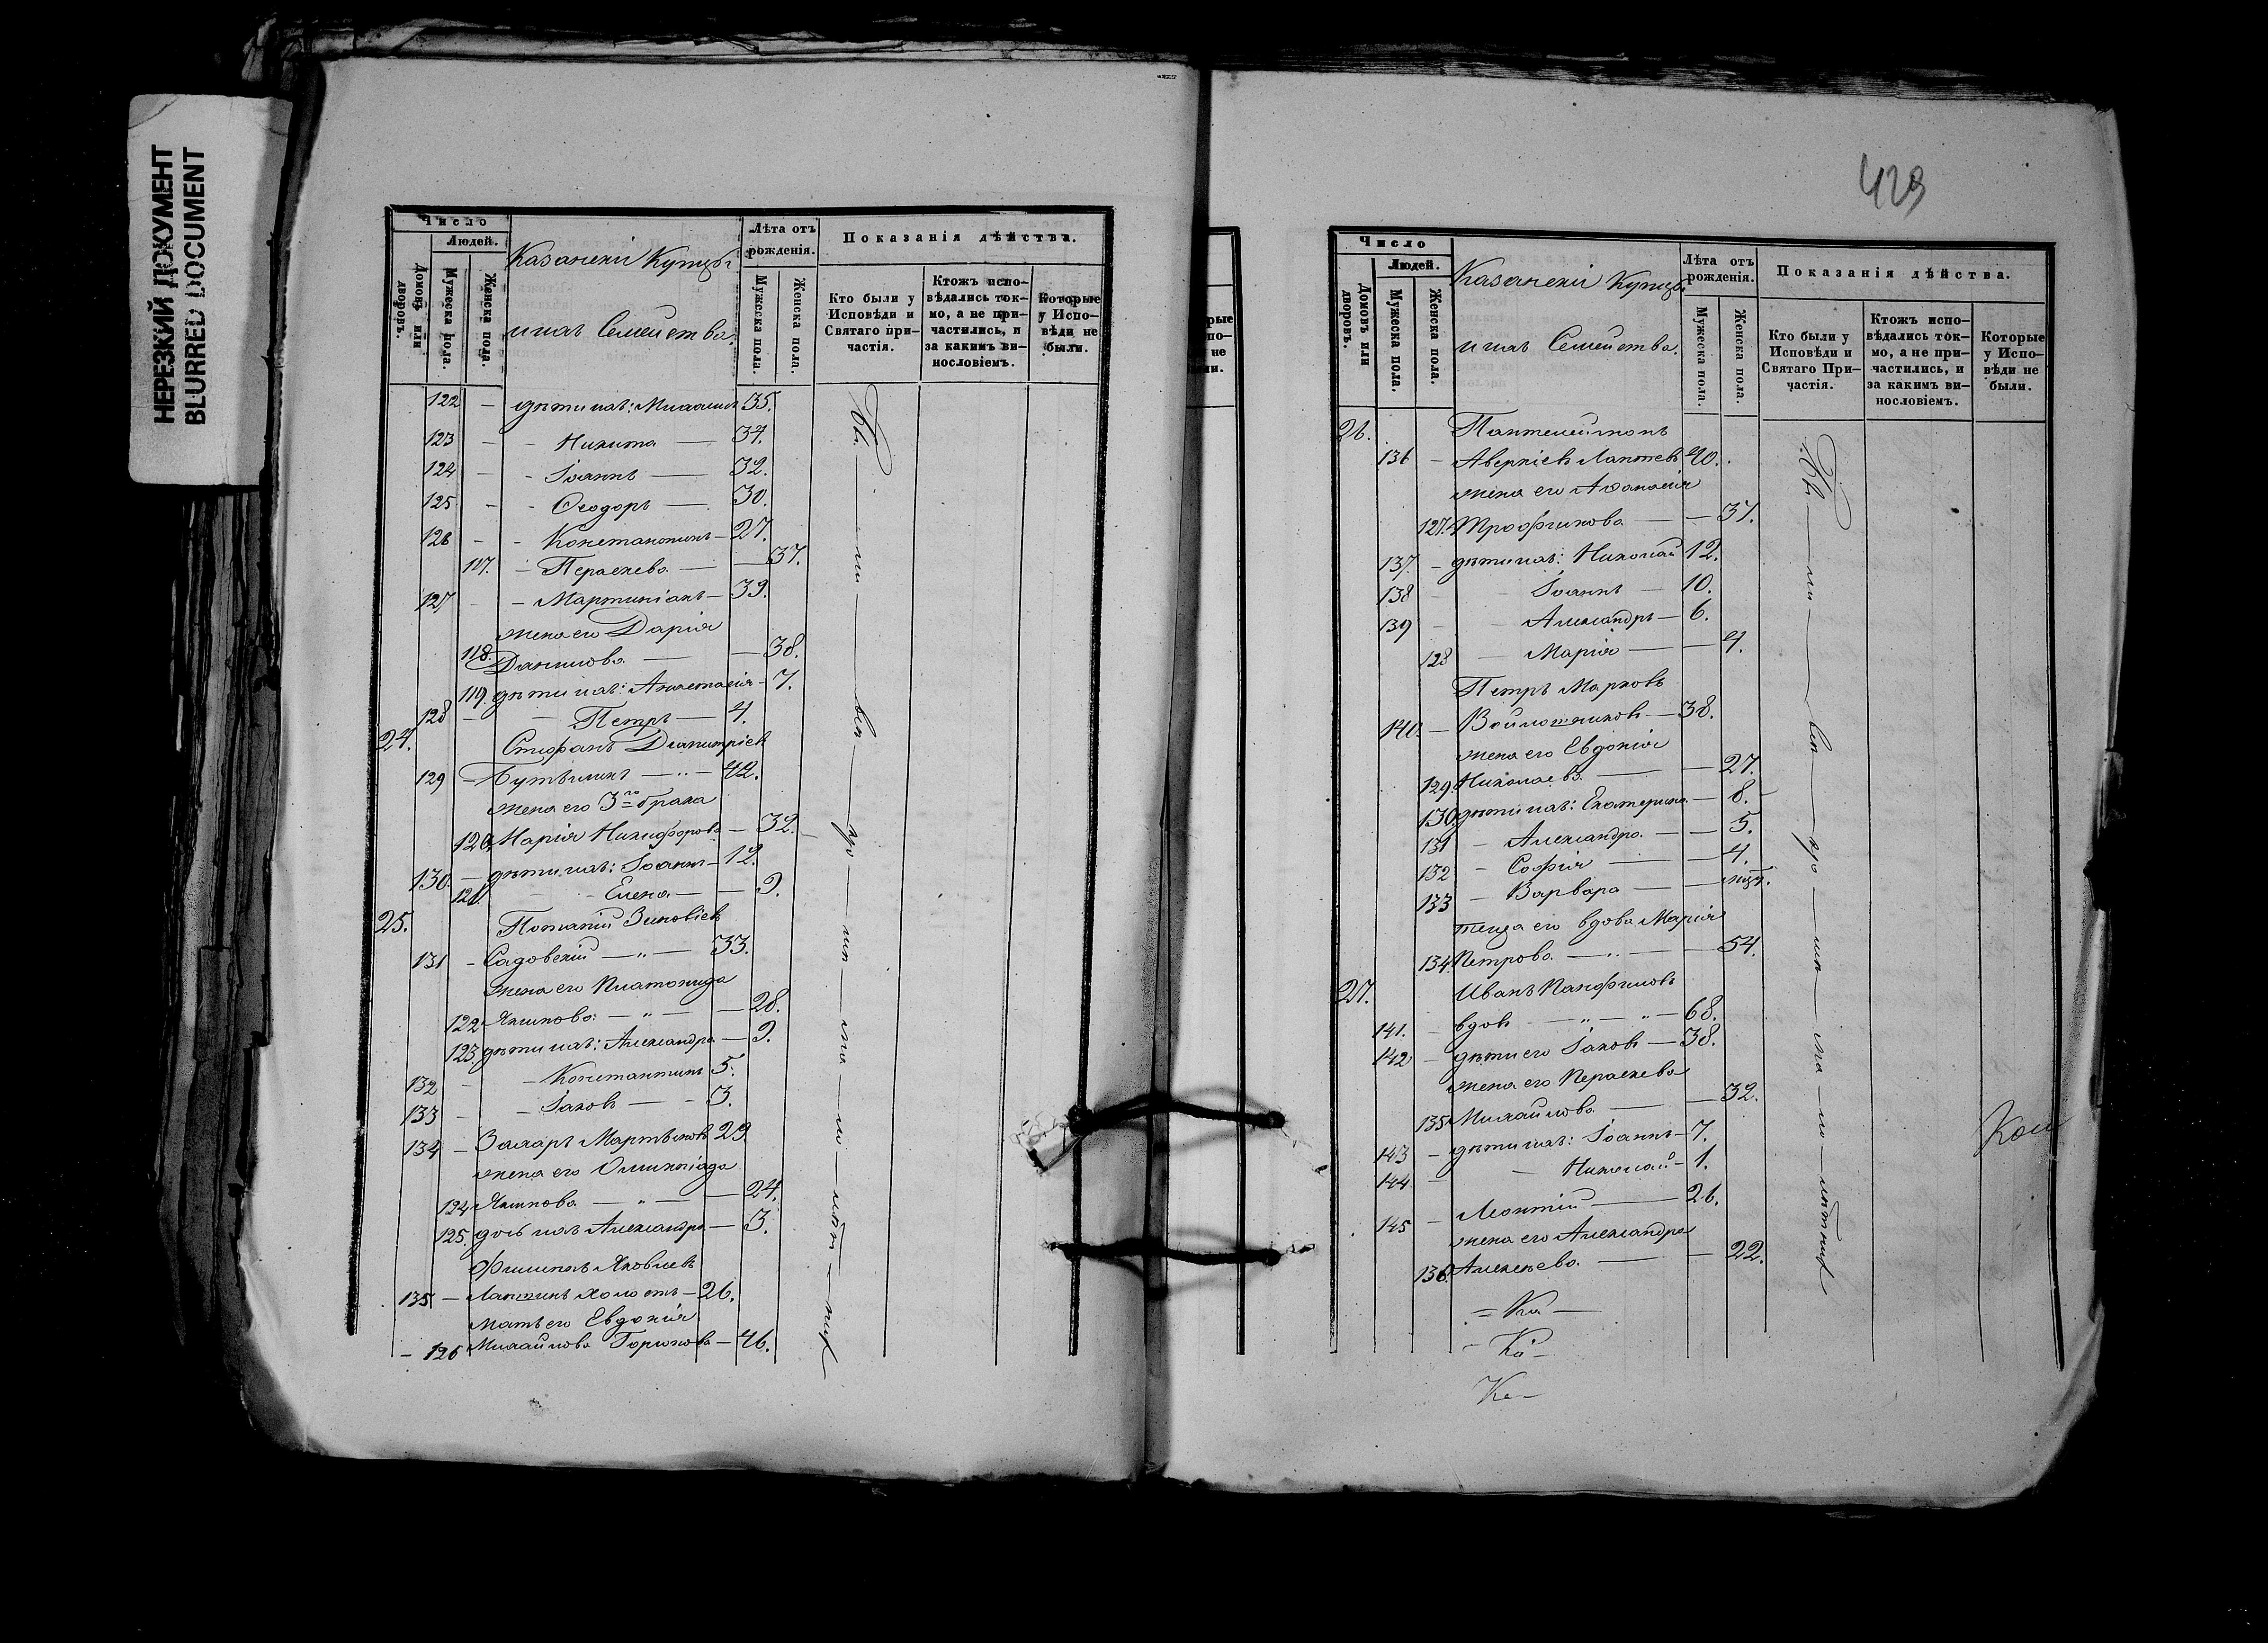 НЕРЕЗКИЙ ДОКУМЕНТ
BLURRED DOCUMENT
Число
Людей.
Домовъ или дворовъ.
Мужеска пола.
Женска пола.
Казанскіи Купцы
и ихъ Семейства.
Лѣта отъ рожденія.
Мужеска пола.
Женска пола.
Показанія дѣйства.
Кто были у Исповѣди и Святаго причастія.
Ктожъ исповѣдались токмо, а не причастились, и за какимъ винословіемъ.
Которые у Исповѣди не были.
122 – дѣти ихъ: Михаилъ 35.
123 – – Никита — 34.
124 – – Іоаннъ — 32.
125 – – Ѳеодоръ — 30.
126 – – Константинъ – 27.
117. – Параскева — — 37.
127 – – Мартиніанъ – 39.
жена его Дарія
118. Данилова — — 38.
119. дѣти ихъ: Анастасія – 7.
128 – – Петръ — 4.
24. Стефанъ Димитріевъ
129 – – „ – 42.
жена его 3го брака
120. Марія Никифорова – 32.
130. – дѣти ихъ: Іоаннъ – 12.
121. – Елена — – 9.
25. Потапій Зиновіевъ
131 – Садовскій — „ — 33.
жена его Платонида
122 Якимова — „ — — 28.
123. дѣти ихъ: Александра — 9.
132 – – Константинъ 5.
133 – – Іаковъ — – 3.
134 – Захаръ 29
жена его Олимпіада
124 Якимова — „ — — 24.
125. дочь ихъ Александра — 3.
Филиппъ Яковлевъ
135 – Лаптинъ холостъ – 26.
Мать его Евдокія
– 126 Михайлова Горюнова – 46.
429
рые
по-
не
ли.
Число
Людей.
Домовъ или дворовъ.
Мужеска пола.
Женска пола.
Казанскіи Купцы
и ихъ Семейства.
Лѣта отъ рожденія.
Мужеска пола.
Женска пола.
Показанія дѣйства.
Кто были у Исповѣди и Святаго Причастія.
Ктожъ исповѣдались токмо, а не причастились, и за какимъ винословіемъ.
Которые у Исповѣди не были.
26. Пантелеимонъ
136 – Аверкіевъ Лаптевъ 40.
жена его Аѳанасія
127. Трофимова — — 37.
137. – дѣти ихъ: Николай 12.
138 – – Іоаннъ — 10.
139 – – Александръ – 6.
128 – Марія — — 4.
Петръ Марковъ
140. – Войлошниковъ — 38.
жена его Евдокія
129. Николаева — — 27.
130. дѣти ихъ: Екатерина – 8.
131 – Александра — — 5.
132 – Софія — — 4.
133 – Варвара — —
теща его вдова Марія
134. Петрова — „ — — 54.
27. Иванъ Панфиловъ
141. – вдовъ — „ — „ — 68.
142 – дѣти его Іаковъ — 38.
жена его Параскева
135 Михайлова — — 32.
143 – дѣти ихъ: Іоаннъ – 7.
144 – – Николай – 1.
145 – Леонтій — 26.
жена его Александра
136. Алексѣева — — 22.